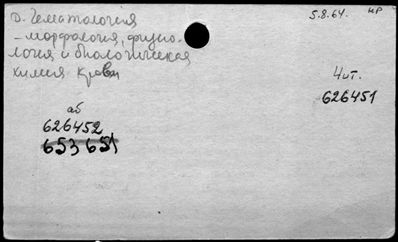 Д. Гематология
– морфология, физио-
логия и биологическая
химия крови
5.8.64. НР
Чит.
626451
аб
626452
653651